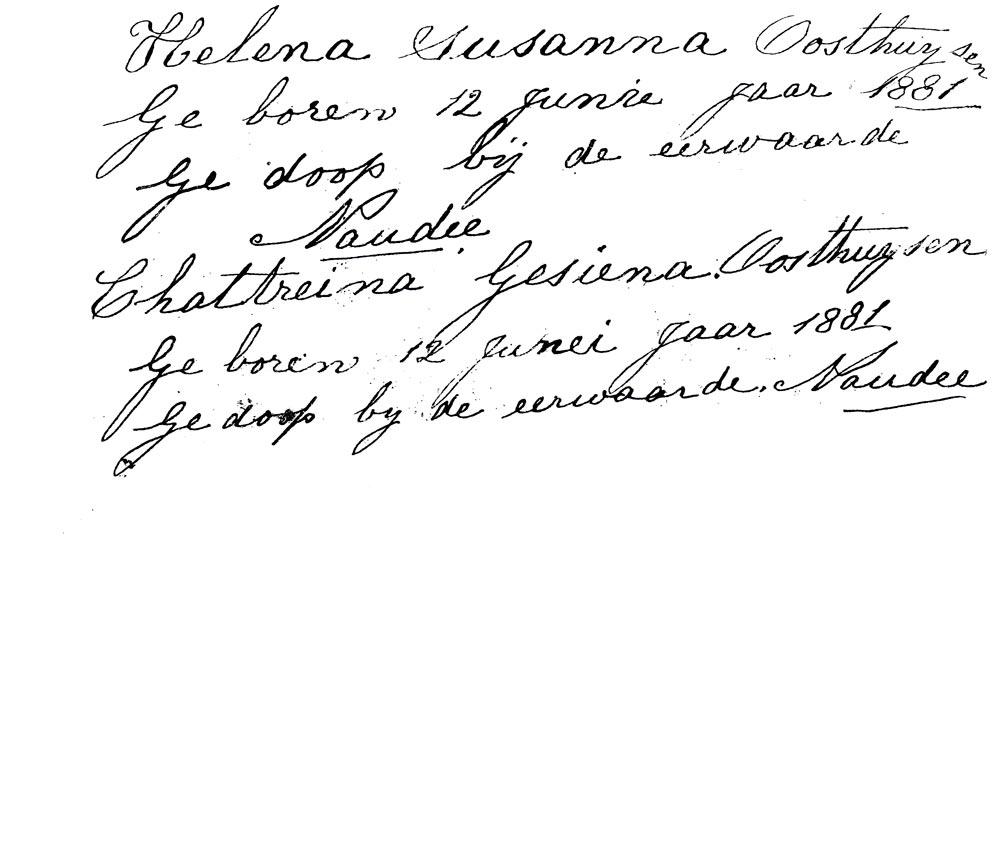 Helena Susanna Oosthuysen
Ge boren 12 Junie jaar 1881
Ge doop bij de eerwaarde
Naudee
Chattreina Gesiena Oosthuysen
Ge boren 12 Junei jaar 1881
Ge doop by de eerwaarde. Naudee